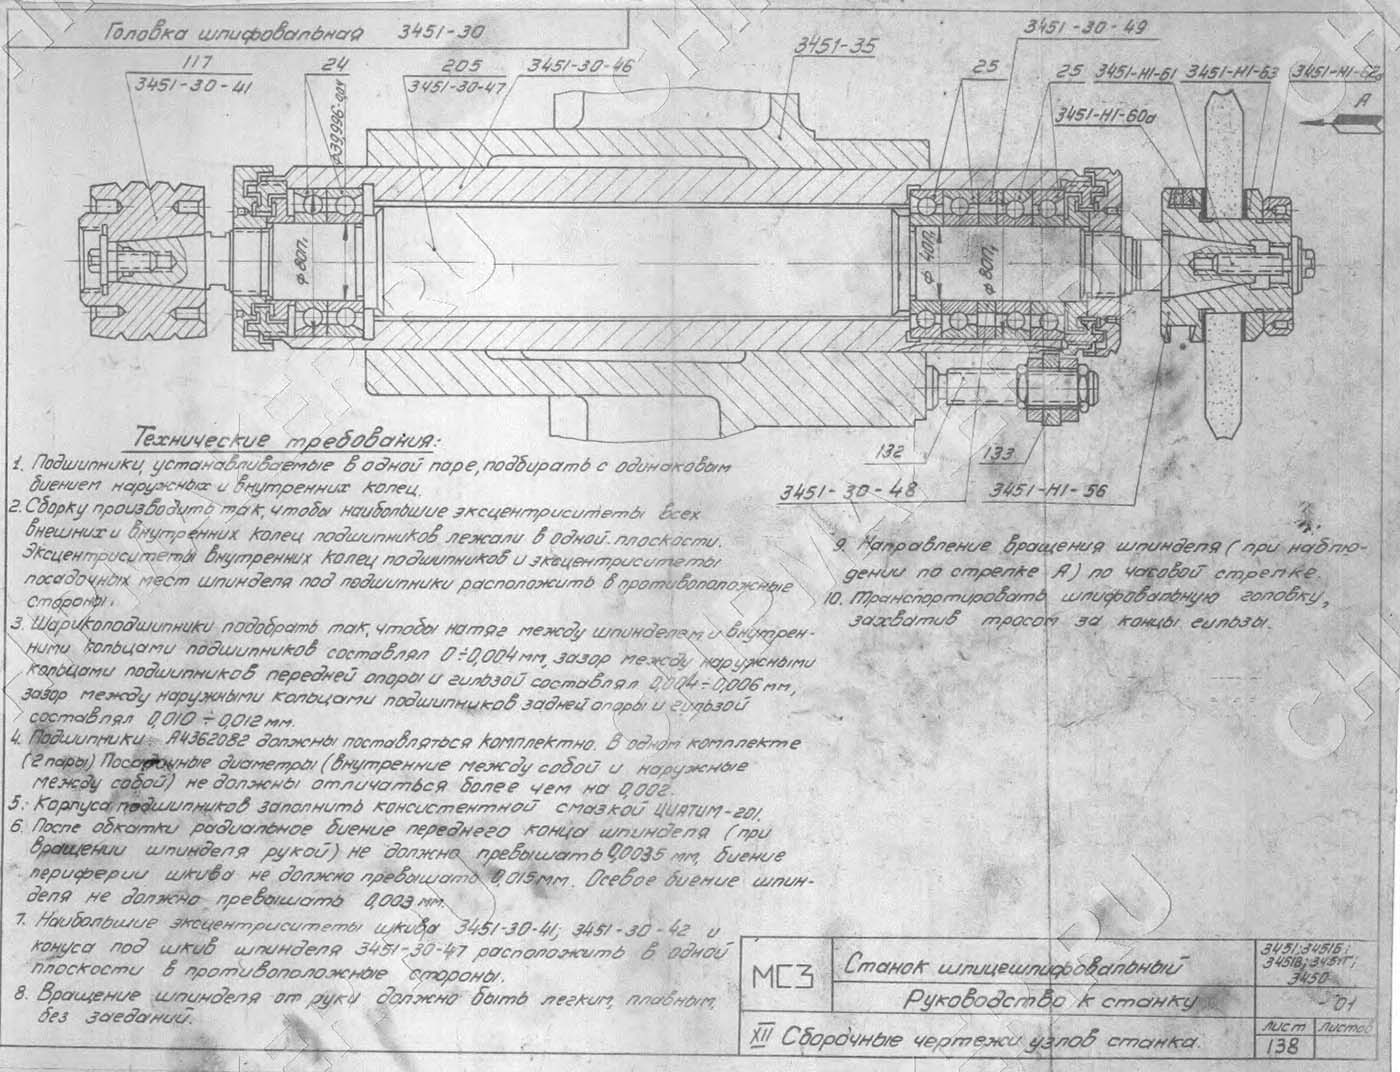 Головка шлифовальная 3451-30
117
3451-30-41
24
ф39,996-0,01
205
3451-30-47
3451-30-46
3451-35
25
3451-30-49
25
3451-Н1-61
3451-Н1-63
3451-Н1-60а
А
ф80П1
ф40П1
ф80П1
132
133
3451-30-48
3451-Н1-56
Технические требования:
1. Подшипники, устанавливаемые в одной паре, подбирать с одинаковым
биением наружных и внутренних колец.
2. Сборку производить так, чтобы наибольшие эксцентриситеты всех
внешних и внутренних колец подшипников лежали в одной плоскости.
Эксцентриситеты внутренних колец подшипников и эксцентриситеты
посадочных мест шпинделя под подшипники расположить в противоположные
стороны.
3. Шарикоподшипники подобрать так, чтобы натяг между шпинделем и внутрен-
ними кольцами подшипников составлял 0÷0,004мм, зазор между наружными
кольцами подшипников передней опоры и гильзой составлял 0,004÷0,006мм,
зазор между наружными кольцами подшипников задней опоры и гильзой
составлял 0,010÷0,012мм.
4. Подшипники А4362082 должны поставляться комплектно. В одном комплекте
(2 пары) Посадочные диаметры (внутренние между собой и наружные
между собой) не должны отличаться более чем на 0,002.
5. Корпуса подшипников заполнить консистентной смазкой ЦИАТИМ-201.
6. После обкатки радиальное биение переднего конца шпинделя (при
вращении шпинделя рукой) не должно превышать 0,0035 мм, биение
периферии шкива не должно превышать 0,015мм. Осевое биение шпин-
деля не должно превышать 0,003 мм.
7. Наибольшие эксцентриситеты шкива 3451-30-41; 3451-30-42 и
конуса под шкив шпинделя 3451-30-47 расположить в одной
плоскости в противоположные стороны.
8. Вращение шпинделя от руки должно быть легким, плавным,
без заеданий.
9. Направление вращения шпинделя (при наблю-
дении по стрелке А) по часовой стрелке.
10. Транспортировать шлифовальную головку,
захватив тросом за концы гильзы.
МСЗ
Станок шлицешлифовальный
3451; 3451Б;
3451В; 3451Г;
3450
Руководство к станку
01
XII Сборочные чертежи узлов станка.
лист
листов
138